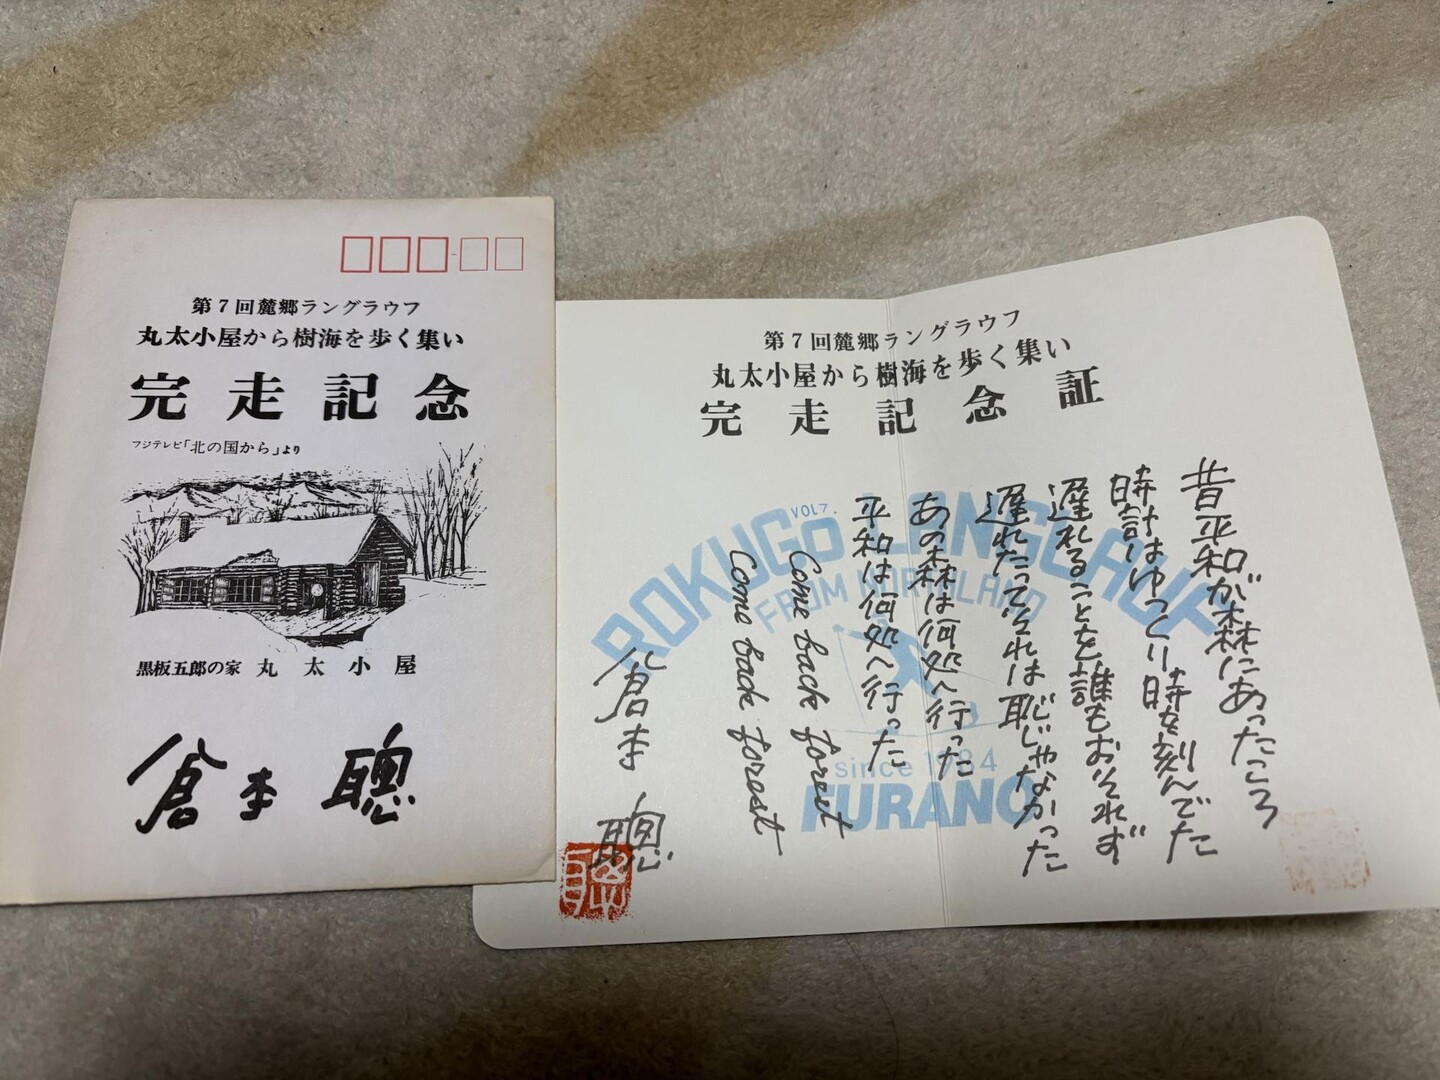 第7回麓郷ラングラウフ
丸太小屋から樹海を歩く集い
完走記念
フジテレビ「北の国から」より
黒板五郎の家 丸太小屋
倉本聰
第7回麓郷ラングラウフ
丸太小屋から樹海を歩く集い
完走記念証
昔平和が森にあったころ
時計はゆっくり時を刻んでた
遅れることを誰もおそれず
遅れたってそれは恥じゃなかった
あの森は何処へ行った
平和は何処へ行った
Come back forest
Come back forest
倉本聰
聰
VOL7.
ROKUGO LANGLAUF
FROM NORTHLAND
since 1984
FURANO